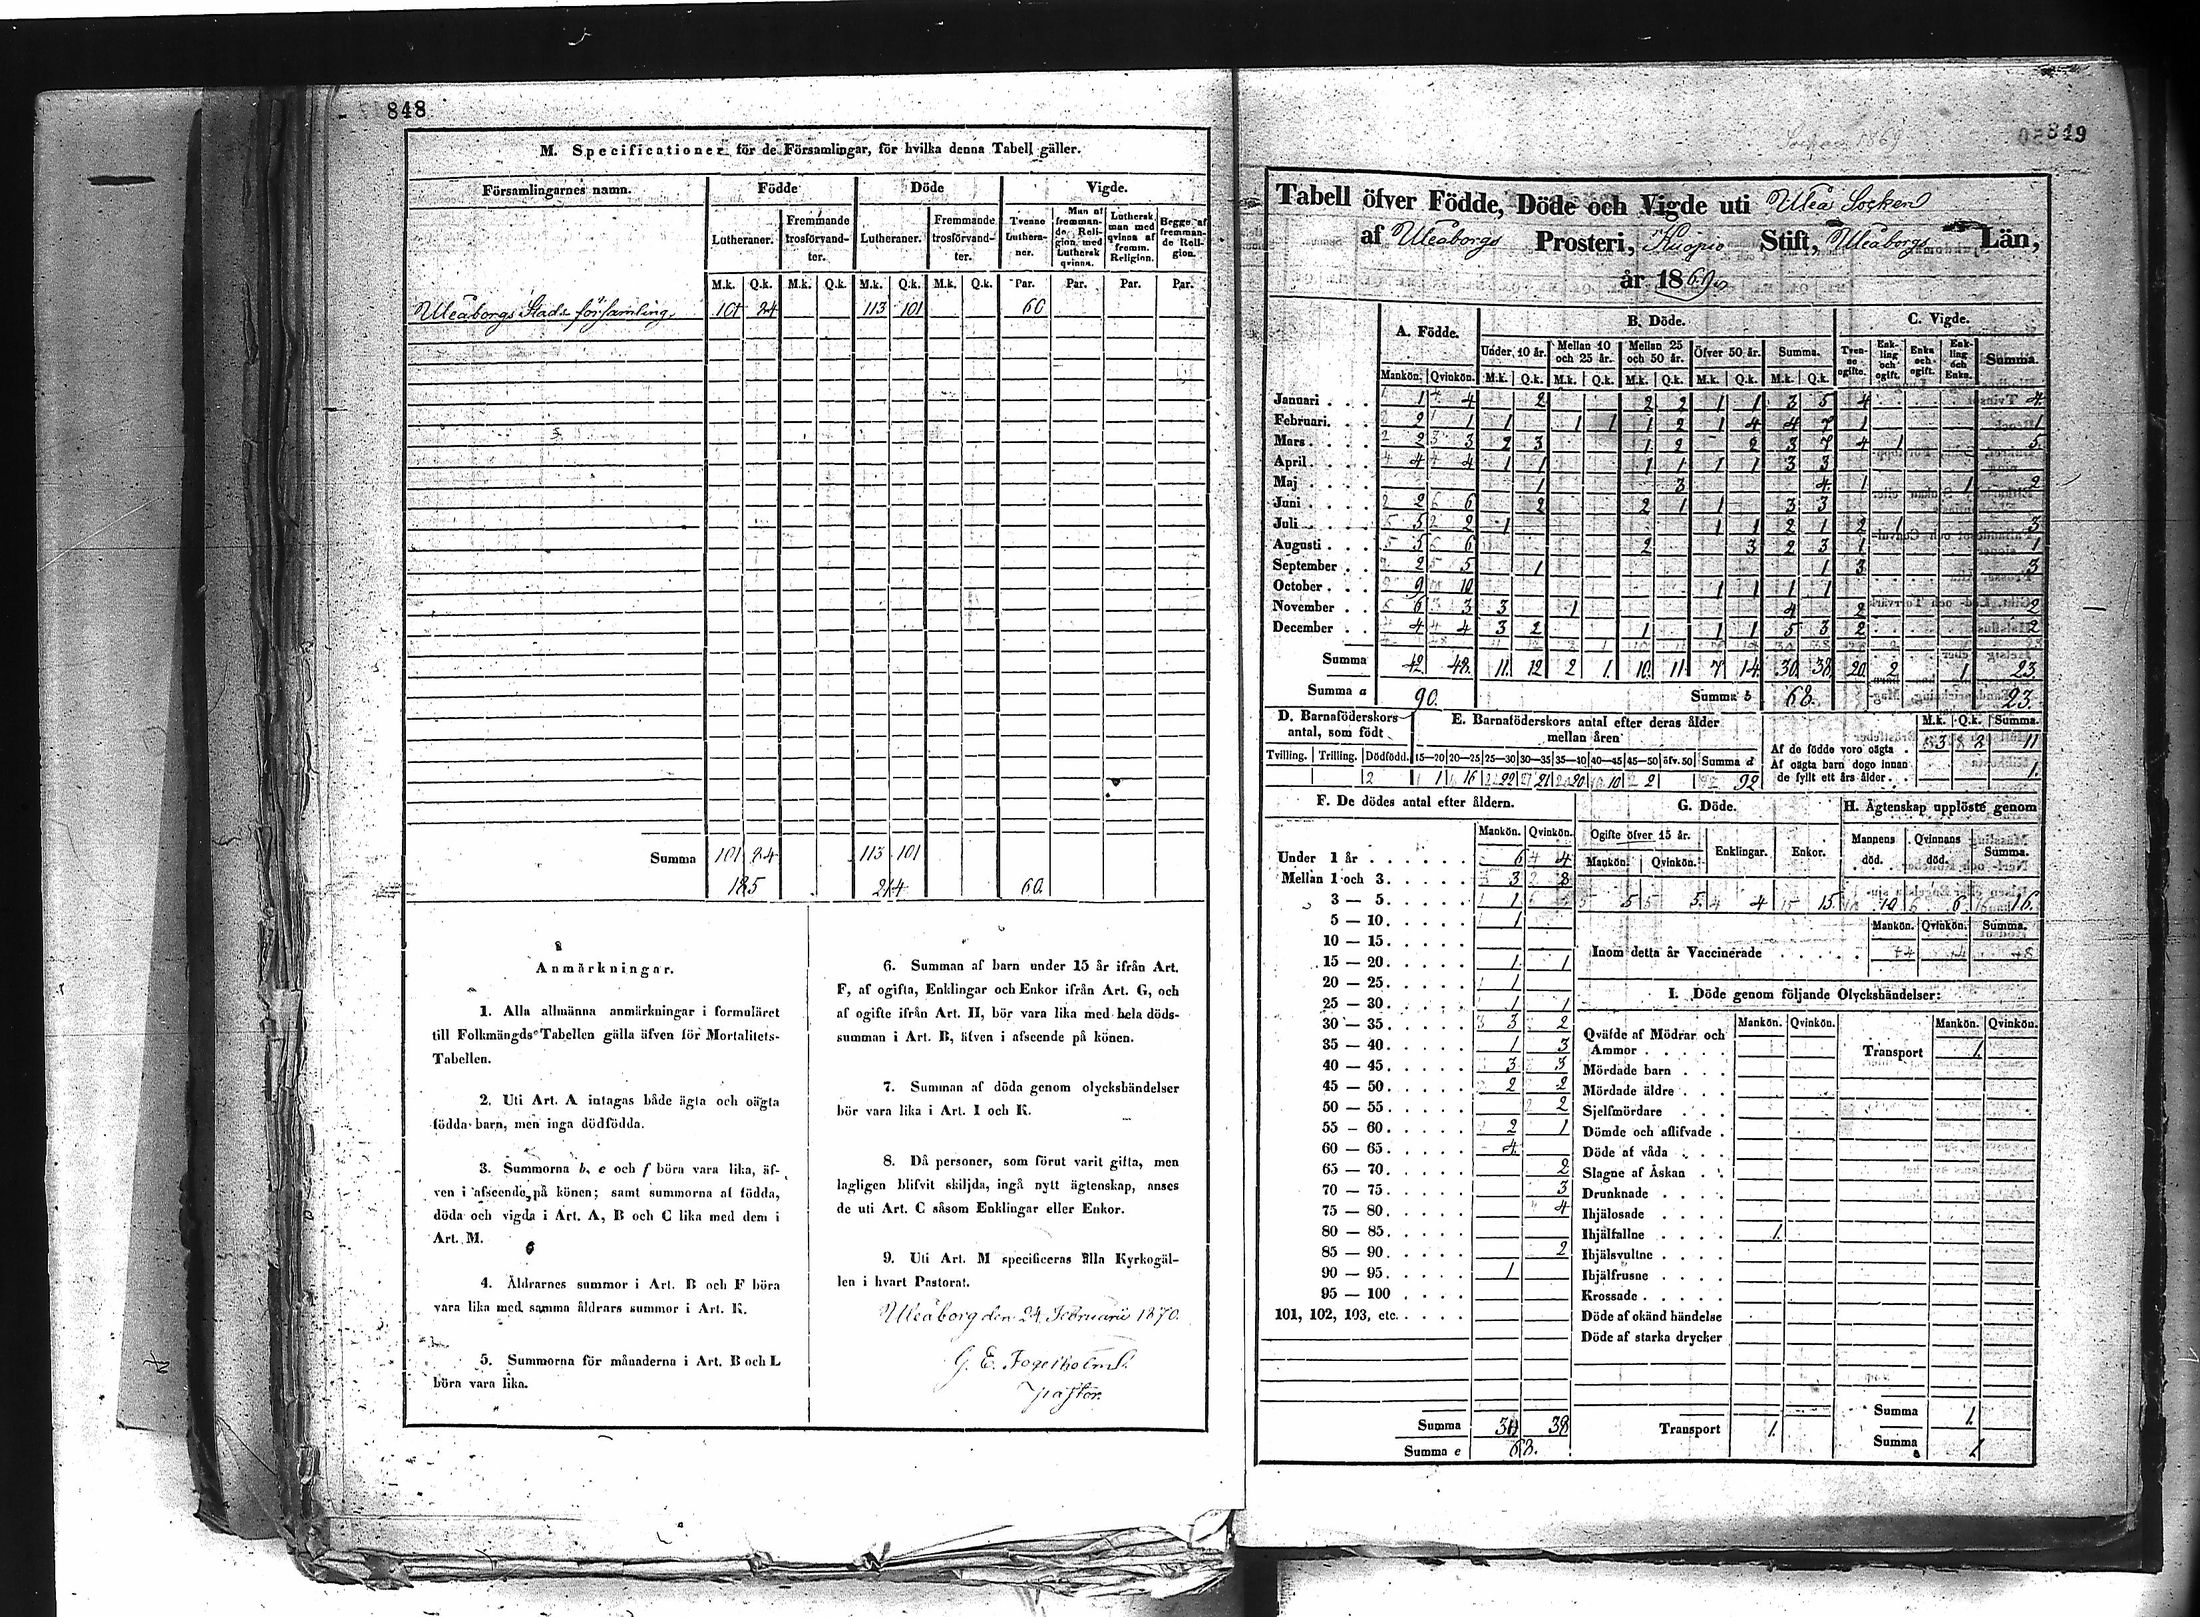 848
M. Specificationer för de Församlingar, för hvilka denna Tabell gäller.
Församlingarnes namn. Födde Döde Vigde.
Lutheraner. Fremmande trosförvandter. Lutheraner. Fremmande trosförvandter. Tvenne Lutheraner. Man af fremmande Religion med Luthersk qvinna. Luthersk man med qvinna af fremm. Religion. Begge af fremmande Religion.
M.k. Q.k. M.k. Q.k. M.k. Q.k. M.k. Q.k. Par. Par. Par. Par.
Uleåborgs Stads församling 101 24 113 101 60
Summa 101 24 113 101
185 214 60
Anmärkningar.
1. Alla allmänna anmärkningar i formuläret
till Folkmängds Tabellen gälla äfven för Mortalitets-
Tabellen.
2. Uti Art. A intagas både ägta och oägta
födda barn, men inga dödfödda.
3. Summorna b, e och f böra vara lika, äf-
ven i afseende på könen; samt summorna af födda,
döda och vigda i Art. A, B och C lika med dem i
Art. M.
4. Åldrarnes summor i Art. B och F böra
vara lika med samma åldrars summor i Art. K.
5. Summorna för månaderna i Art. B och L
böra vara lika.
6. Summan af barn under 15 år ifrån Art.
F, af ogifta, Enklingar och Enkor ifrån Art. G, och
af ogifte ifrån Art. H, bör vara lika med hela döds-
summan i Art. B, äfven i afseende på könen.
7. Summan af döda genom olyckshändelser
bör vara lika i Art. I och K.
8. Då personer, som förut varit gifta, men
lagligen blifvit skiljda, ingå nytt ägtenskap, anses
de uti Art. C såsom Enklingar eller Enkor.
9. Uti Art. M specificeras alla Kyrkogäl-
len i hvart Pastorat.
Uleåborg den 24 Februarii 1870.
Pastor.
849
Socken 1869
Tabell öfver Födde, Döde och Vigde uti Uleå Socken
af Uleåborgs Prosteri, Kuopio Stift, Uleåborgs Län,
år 1869
A. Födde. B. Döde. C. Vigde.
Under 10 år. Mellan 10 och 25 år. Mellan 25 och 50 år. Öfver 50 år. Summa. Tvenne ogifte. Enkling och ogift. Enka och ogift. Enkling och Enka. Summa.
Mankön. Qvinkön. M.k. Q.k. M.k. Q.k. M.k. Q.k. M.k. Q.k. M.k. Q.k.
Januari 1 4 2 2 2 1 1 3 5 4 4
Februari 2 1 1 1 1 1 2 1 4 4 7 1 1
Mars 2 3 2 3 1 2 2 3 7 4 1 5
April 4 4 1 1 1 1 1 1 3 3
Maj 1 3 4 1 1 2
Juni 2 6 2 2 1 1 3 3
Juli 5 2 1 1 1 2 1 2 1 3
Augusti 5 6 2 3 2 3 1 1
September 2 5 1 1 3 3
October 9 10 1 1 1 1
November 6 3 3 1 4 2 2
December 4 4 3 2 1 1 1 5 3 2 2
Summa 42 48 11 12 2 1 10 11 7 14 30 38 20 2 1 23
Summa a 90. Summa b 68. 23.
D. Barnaföderskors antal, som födt E. Barnaföderskors antal efter deras ålder mellan åren M.k. Q.k. Summa.
Tvilling. Trilling. Dödfödd. 15—20 20—25 25—30 30—35 35—40 40—45 45—50 öfv. 50 Summa d
2 1 16 22 21 20 10 2 92
Af de födde voro oägta 3 8 11
Af oägta barn dogo innan
de fyllt ett års ålder 1.
F. De dödes antal efter åldern. G. Döde. H. Ägtenskap upplöste genom
Mankön. Qvinkön. Ogifte öfver 15 år. Enklingar. Enkor. Mannens död. Qvinnans död. Summa.
Mankön. Qvinkön.
5 5 4 15 10 6 16
Under 1 år 6 4
Mellan 1 och 3 3 8
3 — 5 1
5 — 10 1
10 — 15
15 — 20 1 1
20 — 25 1
25 — 30 1 1
30 — 35 3 2
35 — 40 1 3
40 — 45 3 3
45 — 50 2 2
50 — 55 2
55 — 60 2 1
60 — 65 4
65 — 70 2
70 — 75 3
75 — 80 4
80 — 85
85 — 90 2
90 — 95 1
95 — 100
101, 102, 103, etc.
Summa 30 38
Summa e 68.
Mankön. Qvinkön. Summa.
Inom detta år Vaccinerade
I. Döde genom följande Olyckshändelser:
Mankön. Qvinkön. Mankön. Qvinkön.
Qväfde af Mödrar och
Ammor
Transport 1.
Mördade barn
Mördade äldre
Sjelfmördare
Dömde och aflifvade
Döde af våda
Slagne af Åskan
Drunknade
Ihjälosade
Ihjälfallne 1.
Ihjälsvultne
Ihjälfrusne
Krossade
Döde af okänd händelse
Döde af starka drycker
Transport 1.
Summa 1.
Summa 1